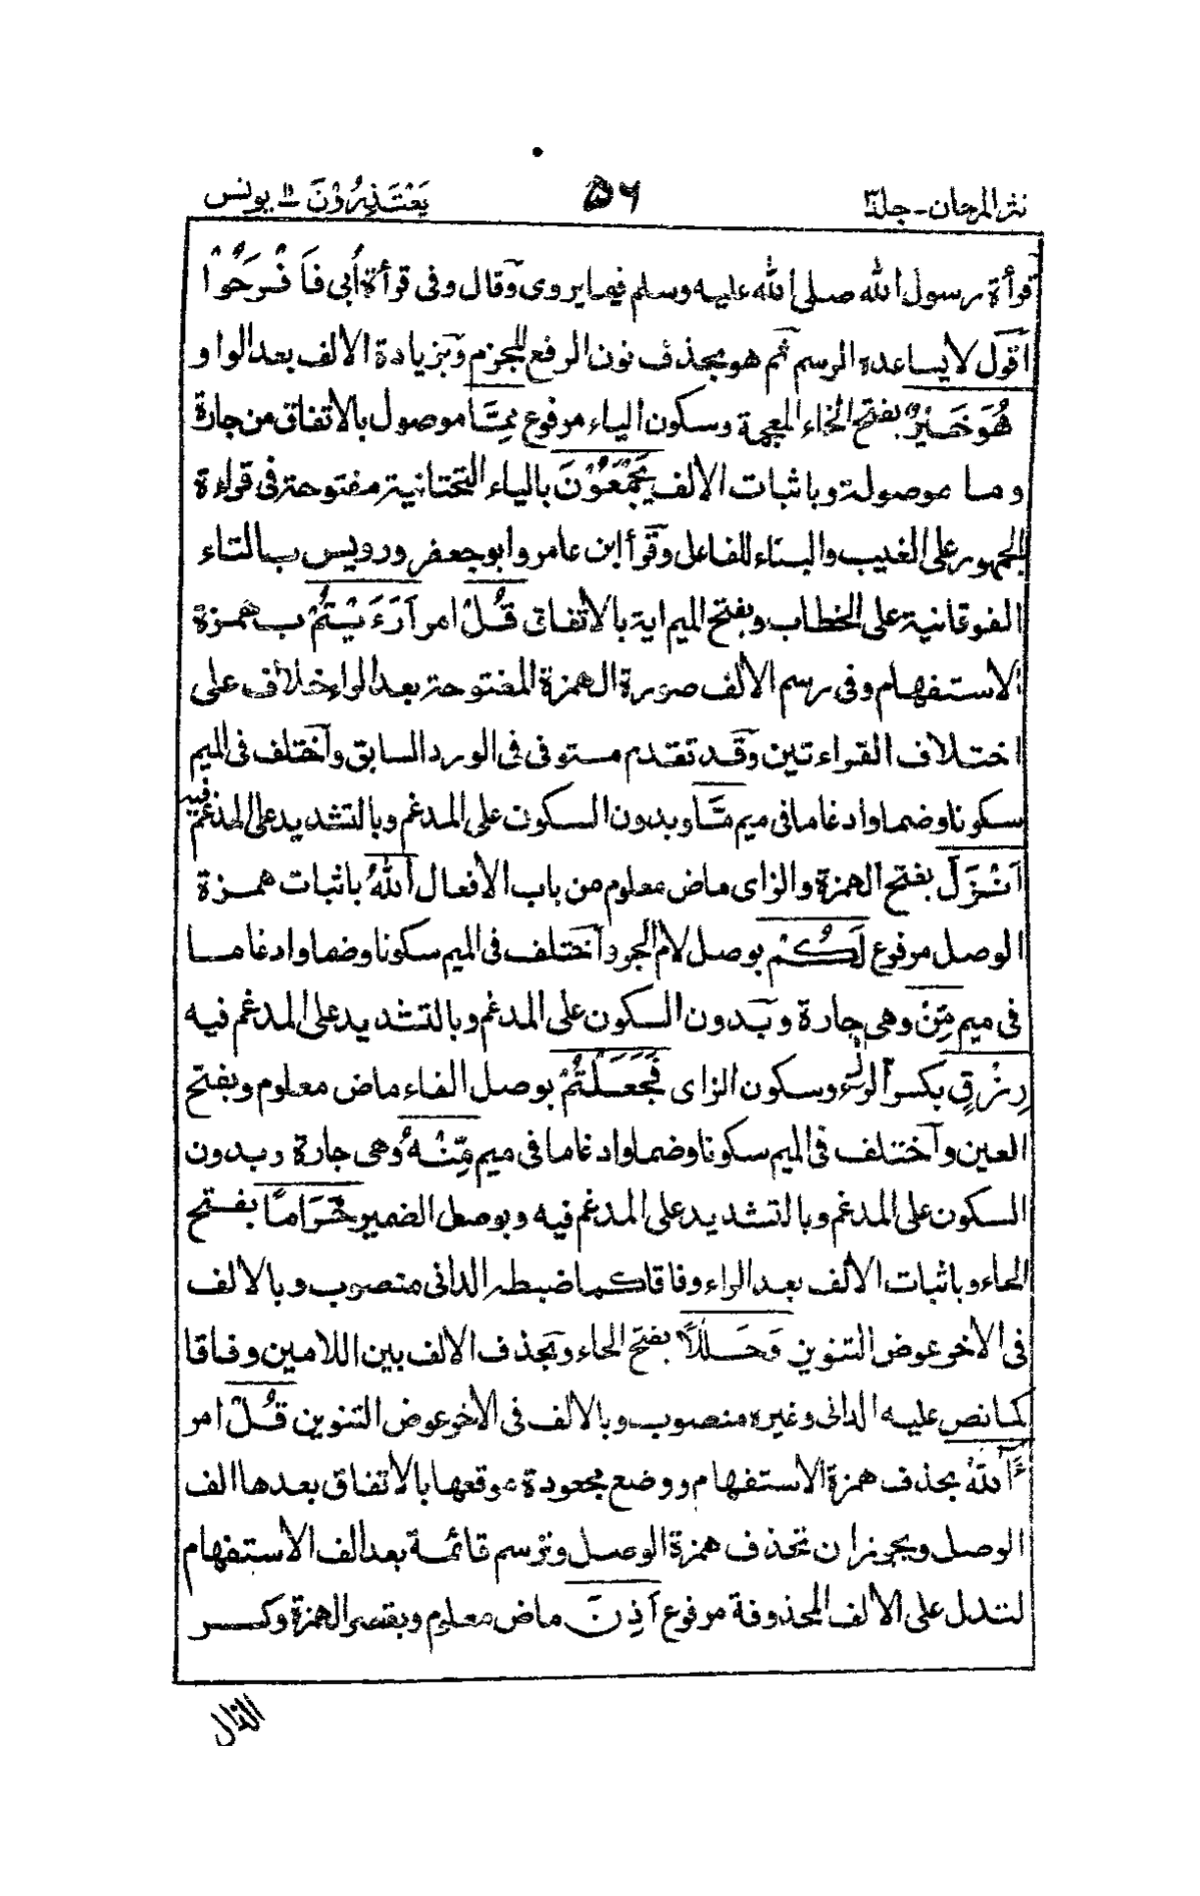 نثر المرجان - جلد ٣
٥٦
يَعْتَذِرُوْنَ ١١ يونس
قرأة رسول الله صلى الله عليه وسلم فيما يروى وقال وفى قرأة أبى فَافْرَحُوْا
اقول لا يساعده الرسم ثم هو بحذف نون الرفع للجزم وبزيادة الالف بعد الواو
هُوَ خَيْرٌ بفتح الخاء المعجمة وسكون الياء مرفوع مِمَّا موصول بالاتفاق من جارة
وما موصولة وباثبات الالف يَجْمَعُوْنَ بالياء التحتانية مفتوحة فى قراءة
الجمهور على الغيب والبناء للفاعل وقرأ ابن عامر وابو جعفر ورويس بالتاء
الفوقانية على الخطاب وبفتح الميم اية بالاتفاق قُلْ امر اَرَءَيْتُمْ بهمزة
الاستفهام وفى رسم الالف صورة الهمزة المفتوحة بعد الراء خلاف على
اختلاف القراءتين وقد تقدم مستوفى فى الورد السابق واختلف فى الميم
سكونا وضما وادغاما فى ميم مَّا وبدون السكون على المدغم وبالتشديد على المدغم فيه
اَنْزَلَ بفتح الهمزة والزاى ماض معلوم من باب الافعال اللهُ باثبات همزة
الوصل مرفوع لَكُمْ بوصل لام الجر واختلف فى الميم سكونا وضما وادغاما
فى ميم مِّنْ وهى جارة وبدون السكون على المدغم وبالتشديد على المدغم فيه
رِزْقٍ بكسر الراء وسكون الزاى فَجَعَلْتُمْ بوصل الفاء ماض معلوم وبفتح
العين واختلف فى الميم سكونا وضما وادغاما فى ميم مِّنْهُ وهى جارة وبدون
السكون على المدغم وبالتشديد على المدغم فيه وبوصل الضمير حَرَامًا بفتح
الحاء وباثبات الألف بعد الراء وفاقا كما ضبطه الدانى منصوب وبالالف
فى الاخر عوض التنوين وَحَلٰلًا بفتح الحاء وبحذف الالف بين اللامين وفاقا
كما نص عليه الدانى وغيره منصوب وبالالف فى الأخر عوض التنوين قُلْ امر
ءٰاللهُ بحذف همزة الاستفهام ووضع مجعودة موقعها بالاتفاق بعدها الف
الوصل ويجوز ان تحذف همزة الوصل وترسم قائمة بعد الف الاستفهام
لتدل على الالف المحذوفة مرفوع اَذِنَ ماض معلوم وبقصر الهمزة وكسر
الذال